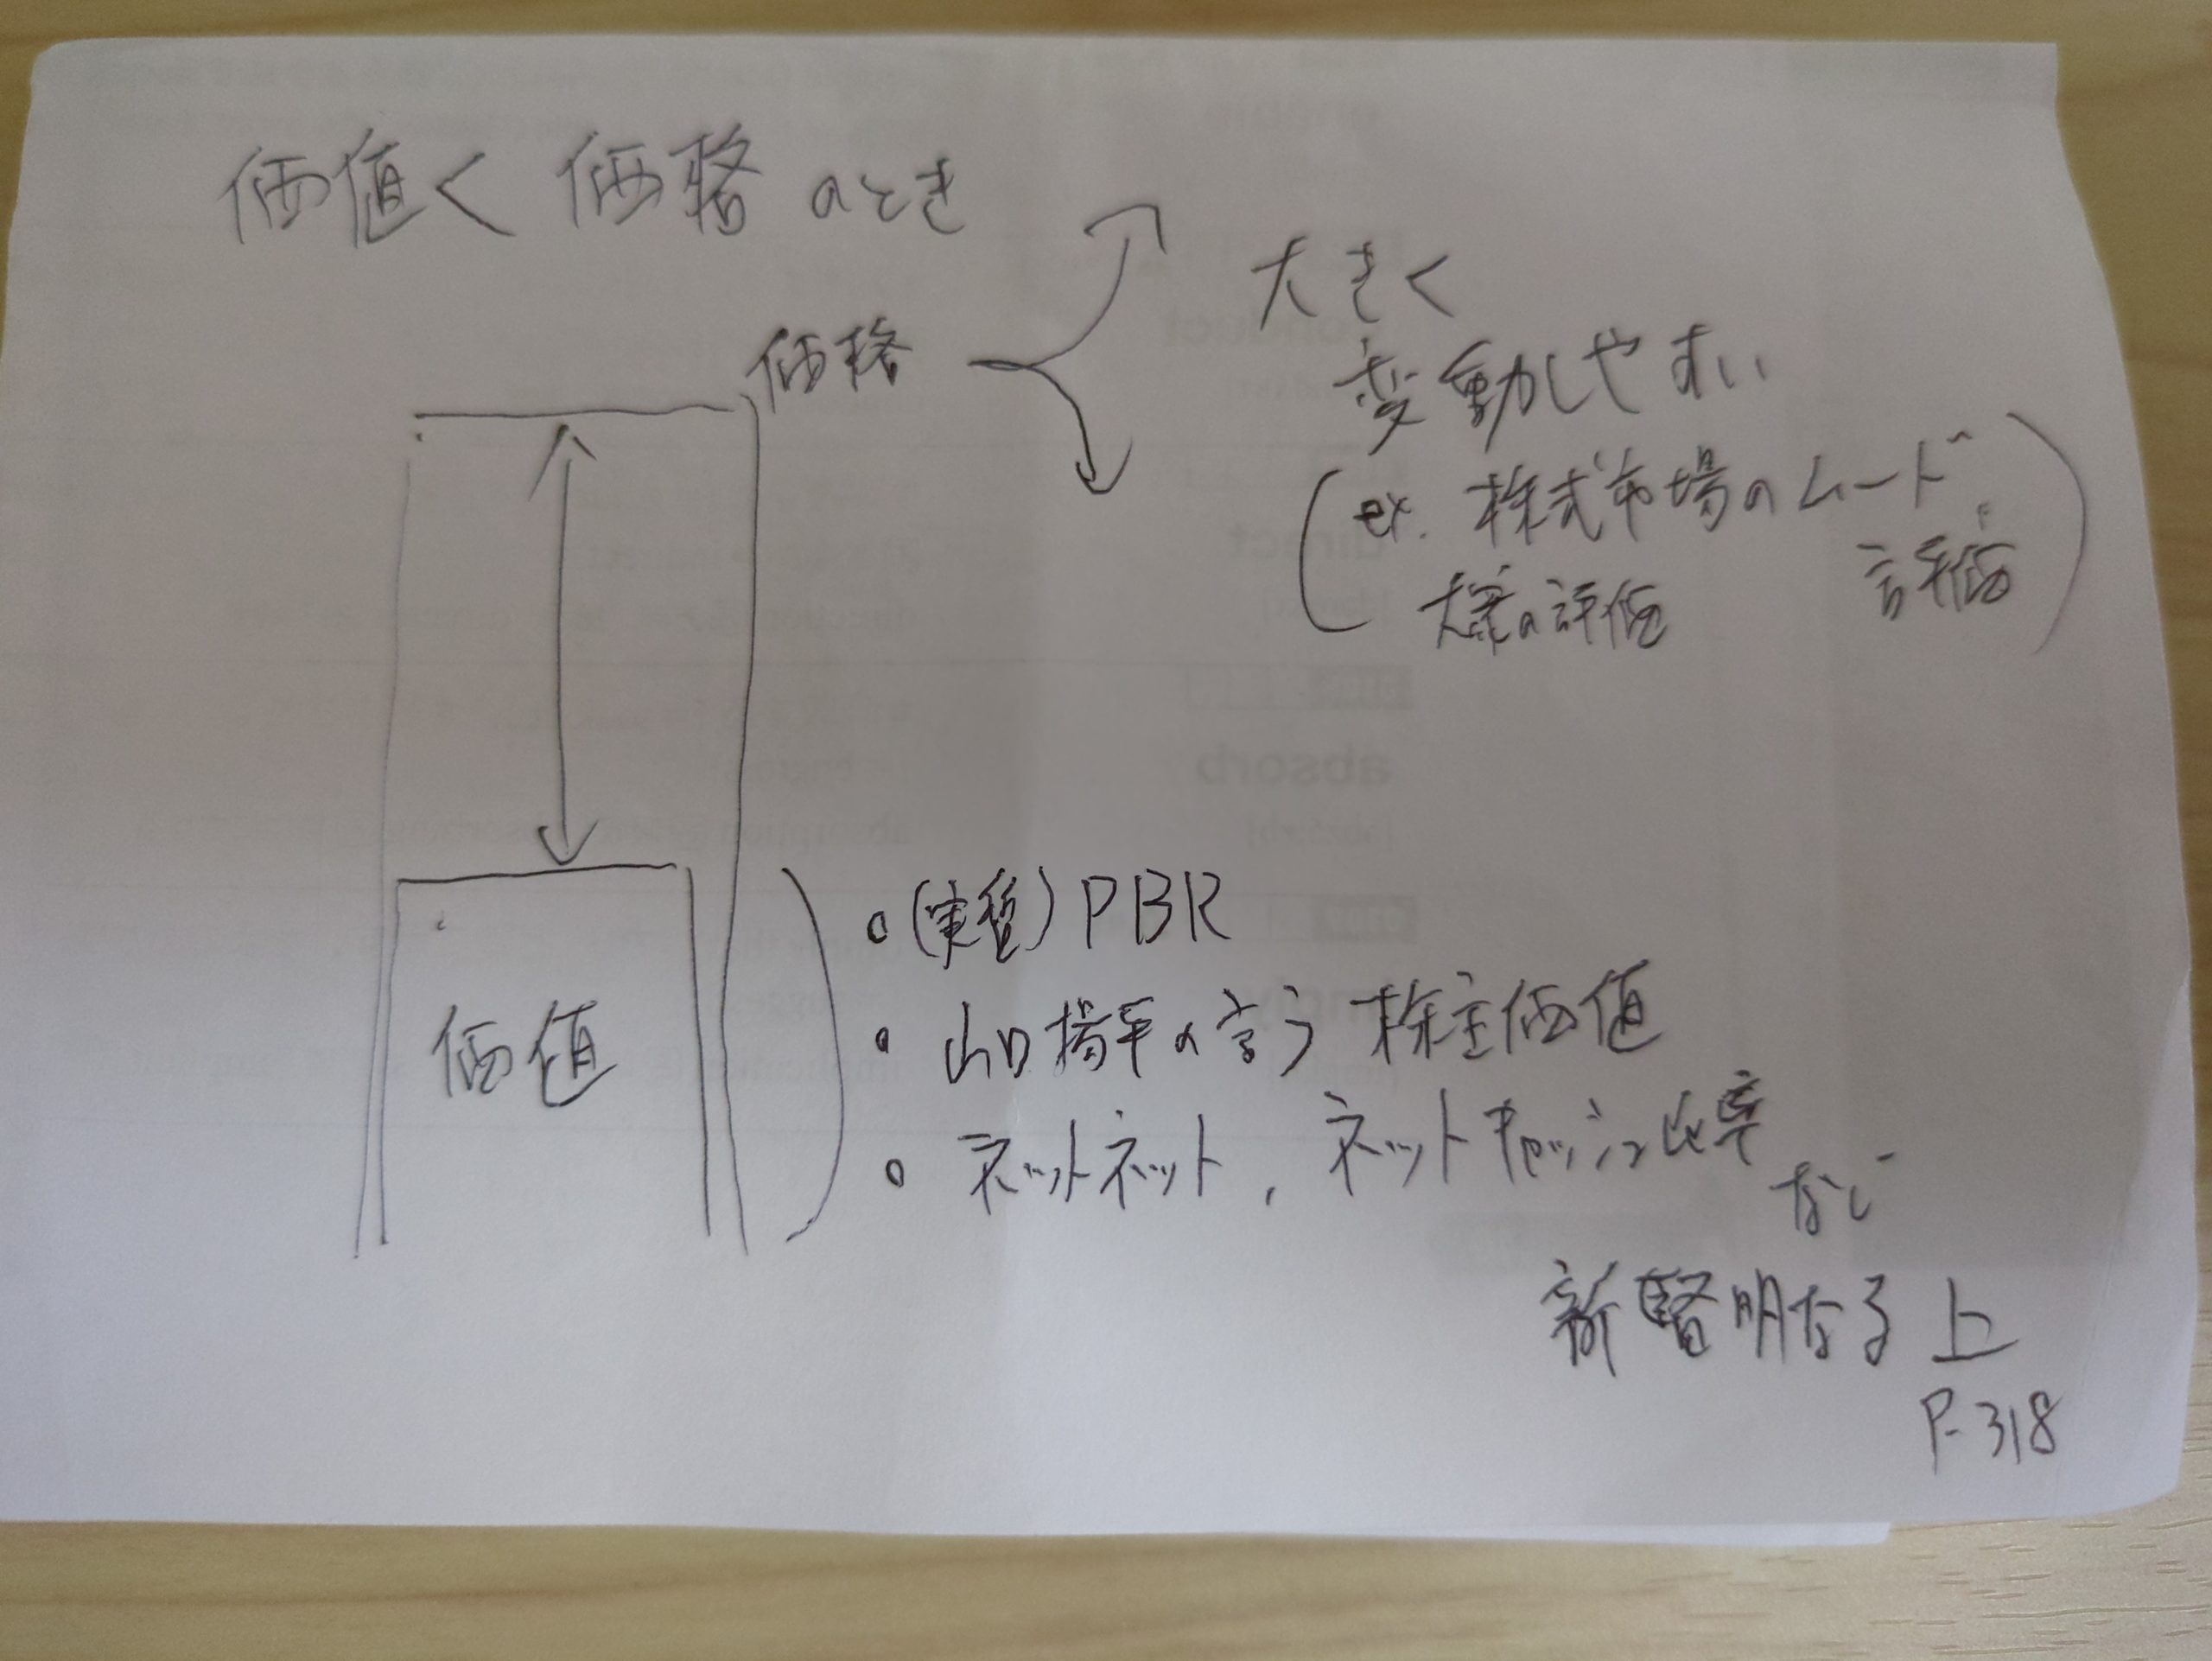 価値く 価格 のとき
価格
大きく
変動しやすい
(ex. 株式市場のムード
評価)
の評価
価値
○ (実質) PBR
○ 山口揚平の言う 株主価値
○ ネットネット, ネットキャッシュ比率
など
新賢明なる 上
P-318
absorb
direct